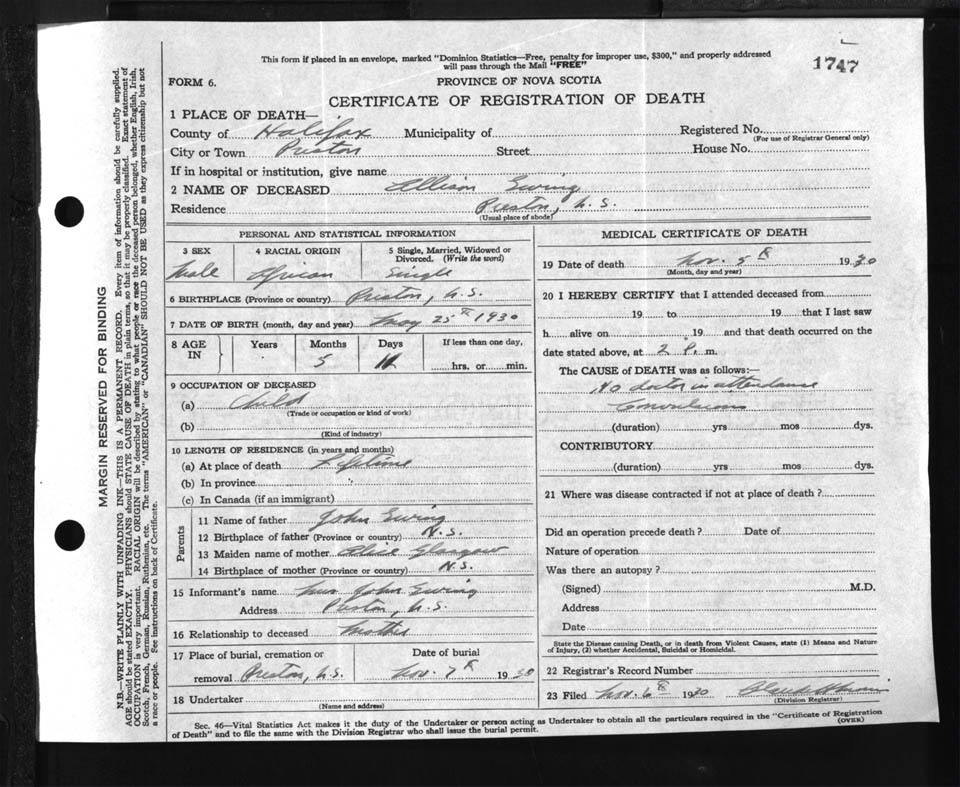 This form if placed in an envelope, marked "Dominion Statistics—Free, penalty for improper use, $300," and properly addressed
will pass through the Mail "FREE"
1747
FORM 6.
PROVINCE OF NOVA SCOTIA
CERTIFICATE OF REGISTRATION OF DEATH
1 PLACE OF DEATH—
County of Halifax Municipality of Registered No.
(For use of Registrar General only)
City or Town Preston Street House No.
If in hospital or institution, give name
2 NAME OF DECEASED Allison Ewing
Residence Preston, N.S.
(Usual place of abode)
PERSONAL AND STATISTICAL INFORMATION
3 SEX 4 RACIAL ORIGIN 5 Single, Married, Widowed or
Divorced. (Write the word)
Male African Single
6 BIRTHPLACE (Province or country) Preston, N.S.
7 DATE OF BIRTH (month, day and year) May 25th 1930
8 AGE IN Years Months Days If less than one day,
5 11 hrs. or min.
9 OCCUPATION OF DECEASED
(a) Child
(Trade or occupation or kind of work)
(b)
(Kind of industry)
10 LENGTH OF RESIDENCE (in years and months)
(a) At place of death Lifetime
(b) In province
(c) In Canada (if an immigrant)
Parents
11 Name of father John Ewing
12 Birthplace of father (Province or country) N.S.
13 Maiden name of mother Alice Glasgow
14 Birthplace of mother (Province or country) N.S.
15 Informant's name Mrs. John Ewing
Address Preston, N.S.
16 Relationship to deceased Mother
17 Place of burial, cremation or Date of burial
removal Preston, N.S. Nov. 7th 1930
18 Undertaker
(Name and address)
MEDICAL CERTIFICATE OF DEATH
19 Date of death Nov. 5th 1930
(Month, day and year)
20 I HEREBY CERTIFY that I attended deceased from
19 to 19 that I last saw
h alive on 19 and that death occurred on the
date stated above, at 2 P. m.
The CAUSE of DEATH was as follows:—
No doctor in attendance
Convulsions
(duration) yrs mos dys.
CONTRIBUTORY
(duration) yrs mos dys.
21 Where was disease contracted if not at place of death?
Did an operation precede death? Date of
Nature of operation
Was there an autopsy?
(Signed) M.D.
Address
Date
State the Disease causing Death, or in death from Violent Causes, state (1) Means and Nature
of Injury, (2) whether Accidental, Suicidal or Homicidal.
22 Registrar's Record Number
23 Filed Nov. 6th 1930
(Division Registrar)
Sec. 46—Vital Statistics Act makes it the duty of the Undertaker or person acting as Undertaker to obtain all the particulars required in the "Certificate of Registration
of Death" and to file the same with the Division Registrar who shall issue the burial permit.
(OVER)
MARGIN RESERVED FOR BINDING
N.B.—WRITE PLAINLY WITH UNFADING INK—THIS IS A PERMANENT RECORD. Every item of information should be carefully supplied.
AGE should be stated EXACTLY. PHYSICIANS should STATE CAUSE OF DEATH in plain terms, so that it may be properly classified. Exact statement of
OCCUPATION is very important. RACIAL ORIGIN will be described by stating to what people or race the deceased person belonged, whether English, Irish,
Scotch, French, German, Russian, Ruthenian, etc. The terms "AMERICAN" or "CANADIAN" SHOULD NOT BE USED as they express citizenship but not
a race or people. See instructions on back of Certificate.